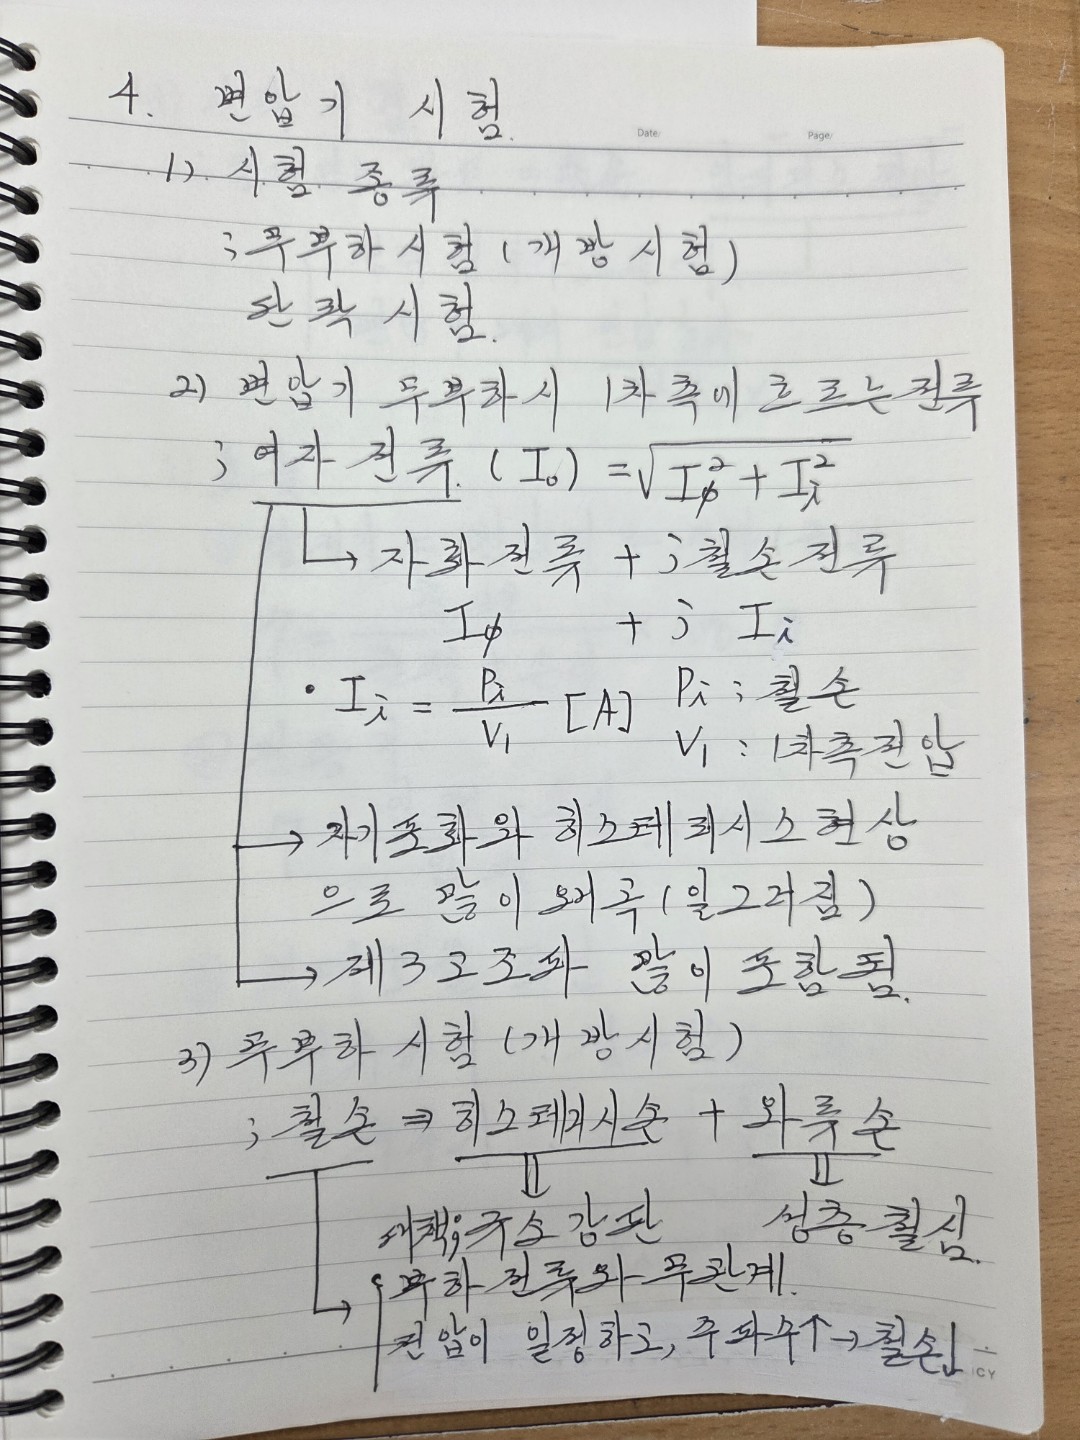 Date/ Page/
4. 변압기 시험.
1) 시험 종류
; 무부하 시험 (개방 시험)
단락 시험.
2) 변압기 무부하시 1차측에 흐르는 전류
; 여자 전류. (I₀) = √(I∅² + Iᵢ²)
→ 자화전류 + j 철손전류
I∅ + j Iᵢ
• Iᵢ = Pᵢ / V₁ [A] Pᵢ ; 철손
V₁ : 1차측전압
→ 자기포화와 히스테리시스현상
으로 많이 왜곡 (일그러짐)
→ 제3고조파 많이 포함됨.
3) 무부하 시험 (개방시험)
; 철손 ⇒ 히스테리시손 + 와류손
대책; 규소강판 성층철심.
→ 부하전류와 무관계.
전압이 일정하고, 주파수↑ → 철손↓